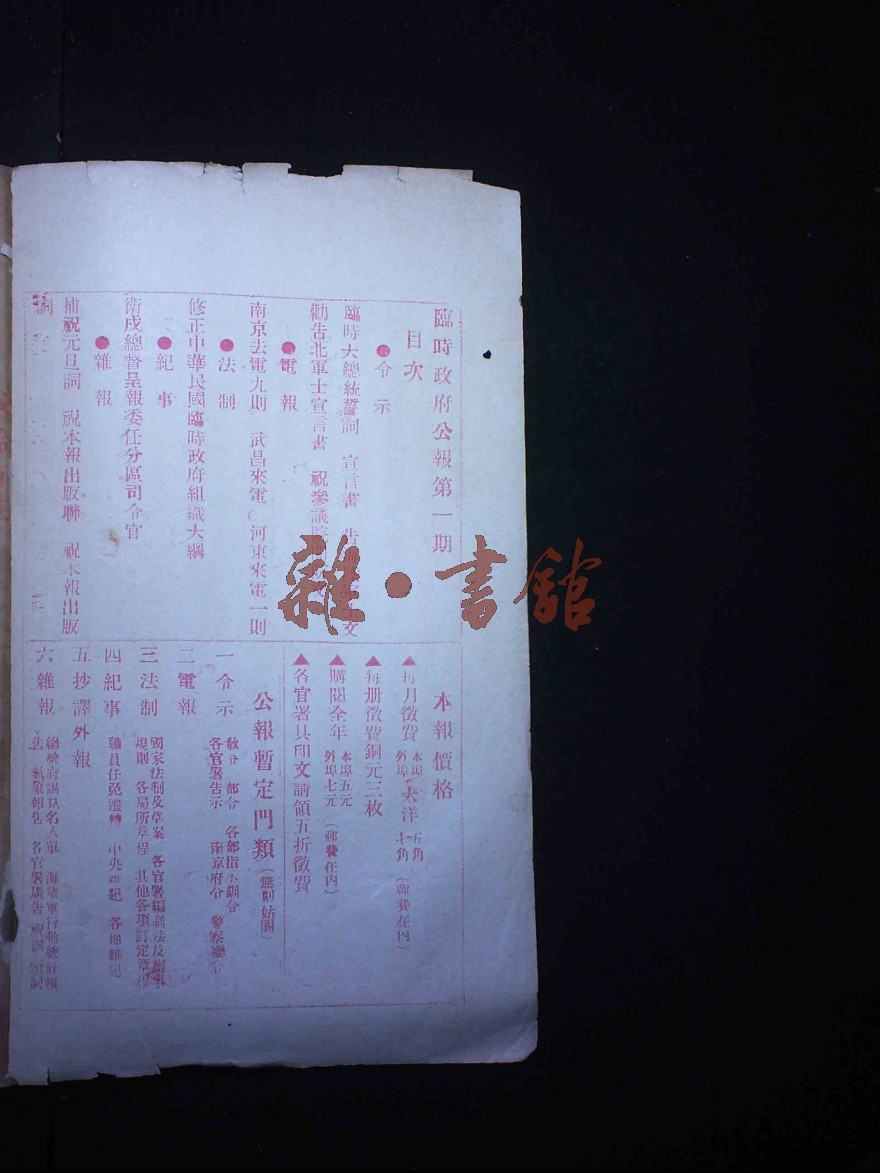 臨時政府公報第一期
目次
●令示
臨時大總統誓詞　宣言書　告
勸告北軍士宣言書　祝參議
●電報
南京去電九則　武昌來電　河東來電一則
●法制
修正中華民國臨時政府組織大綱
●紀事
衛戍總督呈報委任分區司令官
●雜報
補祝元旦詞　祝本報出版聯　祝本報出版
詞
本報價格
▲每月徵費　本埠　外埠　大洋　五角　七角　（郵費在內）
▲每册徵費銅元三枚
▲購閱全年　本埠五元　外埠七元　（郵費在內）
▲各官署具印文請領五折徵費
公報暫定門類（無則姑闕）
一令示　教令　部令　各部指示訓令
各官署告示　南京府令　警察廳令
二電報
三法制　國家法制及草案　各官署編制法及辦事
規則　各局所章程　其他各項訂定章程
四紀事　職員任免遷轉　中央雜紀　各地雜紀
五抄譯外報
六雜報　總統府謁見名人單　海陸軍行動統計報
告　氣象報告　各官署廣告　祝詞　頌詞
雜·書館